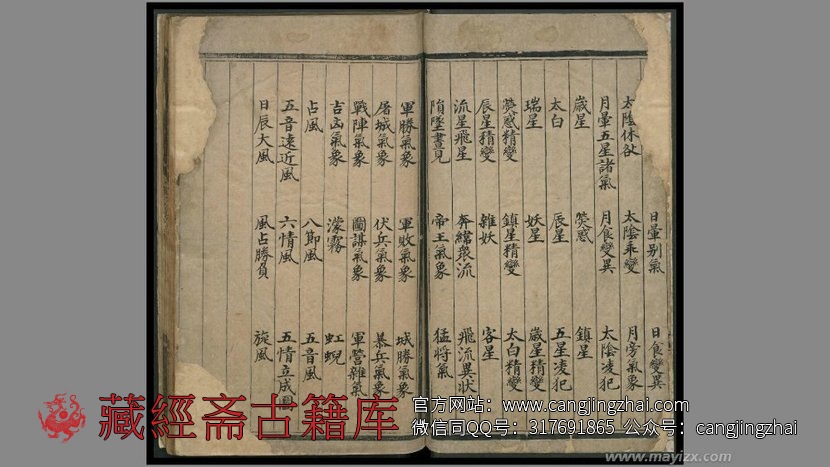 日暈别氣 日食變異
太陰休咎 太陰乘變 月旁氣象
月暈五星諸氣 月食變異 太陰凌犯
歲星 熒惑 鎮星
太白 辰星 五星凌犯
瑞星 妖星 歲星精變
熒惑精變 鎮星精變 太白精變
辰星精變 雜妖 客星
流星飛星 衆流 飛流異狀
隕墜晝見 帝王氣象 猛將氣
軍勝氣象 軍敗氣象 城勝氣象
屠城氣象 伏兵氣象 暴兵氣象
戰陣氣象 圖謀氣象 軍營雜氣
吉凶氣象 濛霧 虹蜺
占風 八節風 五音風
五音遠近風 六情風 五情立成圖
日辰大風 風占勝負 旋風
藏經斋古籍库
官方网站：www.cangjingzhai.com
微信同QQ号：317691865 公众号：cangjingzhai
www.mayizx.com